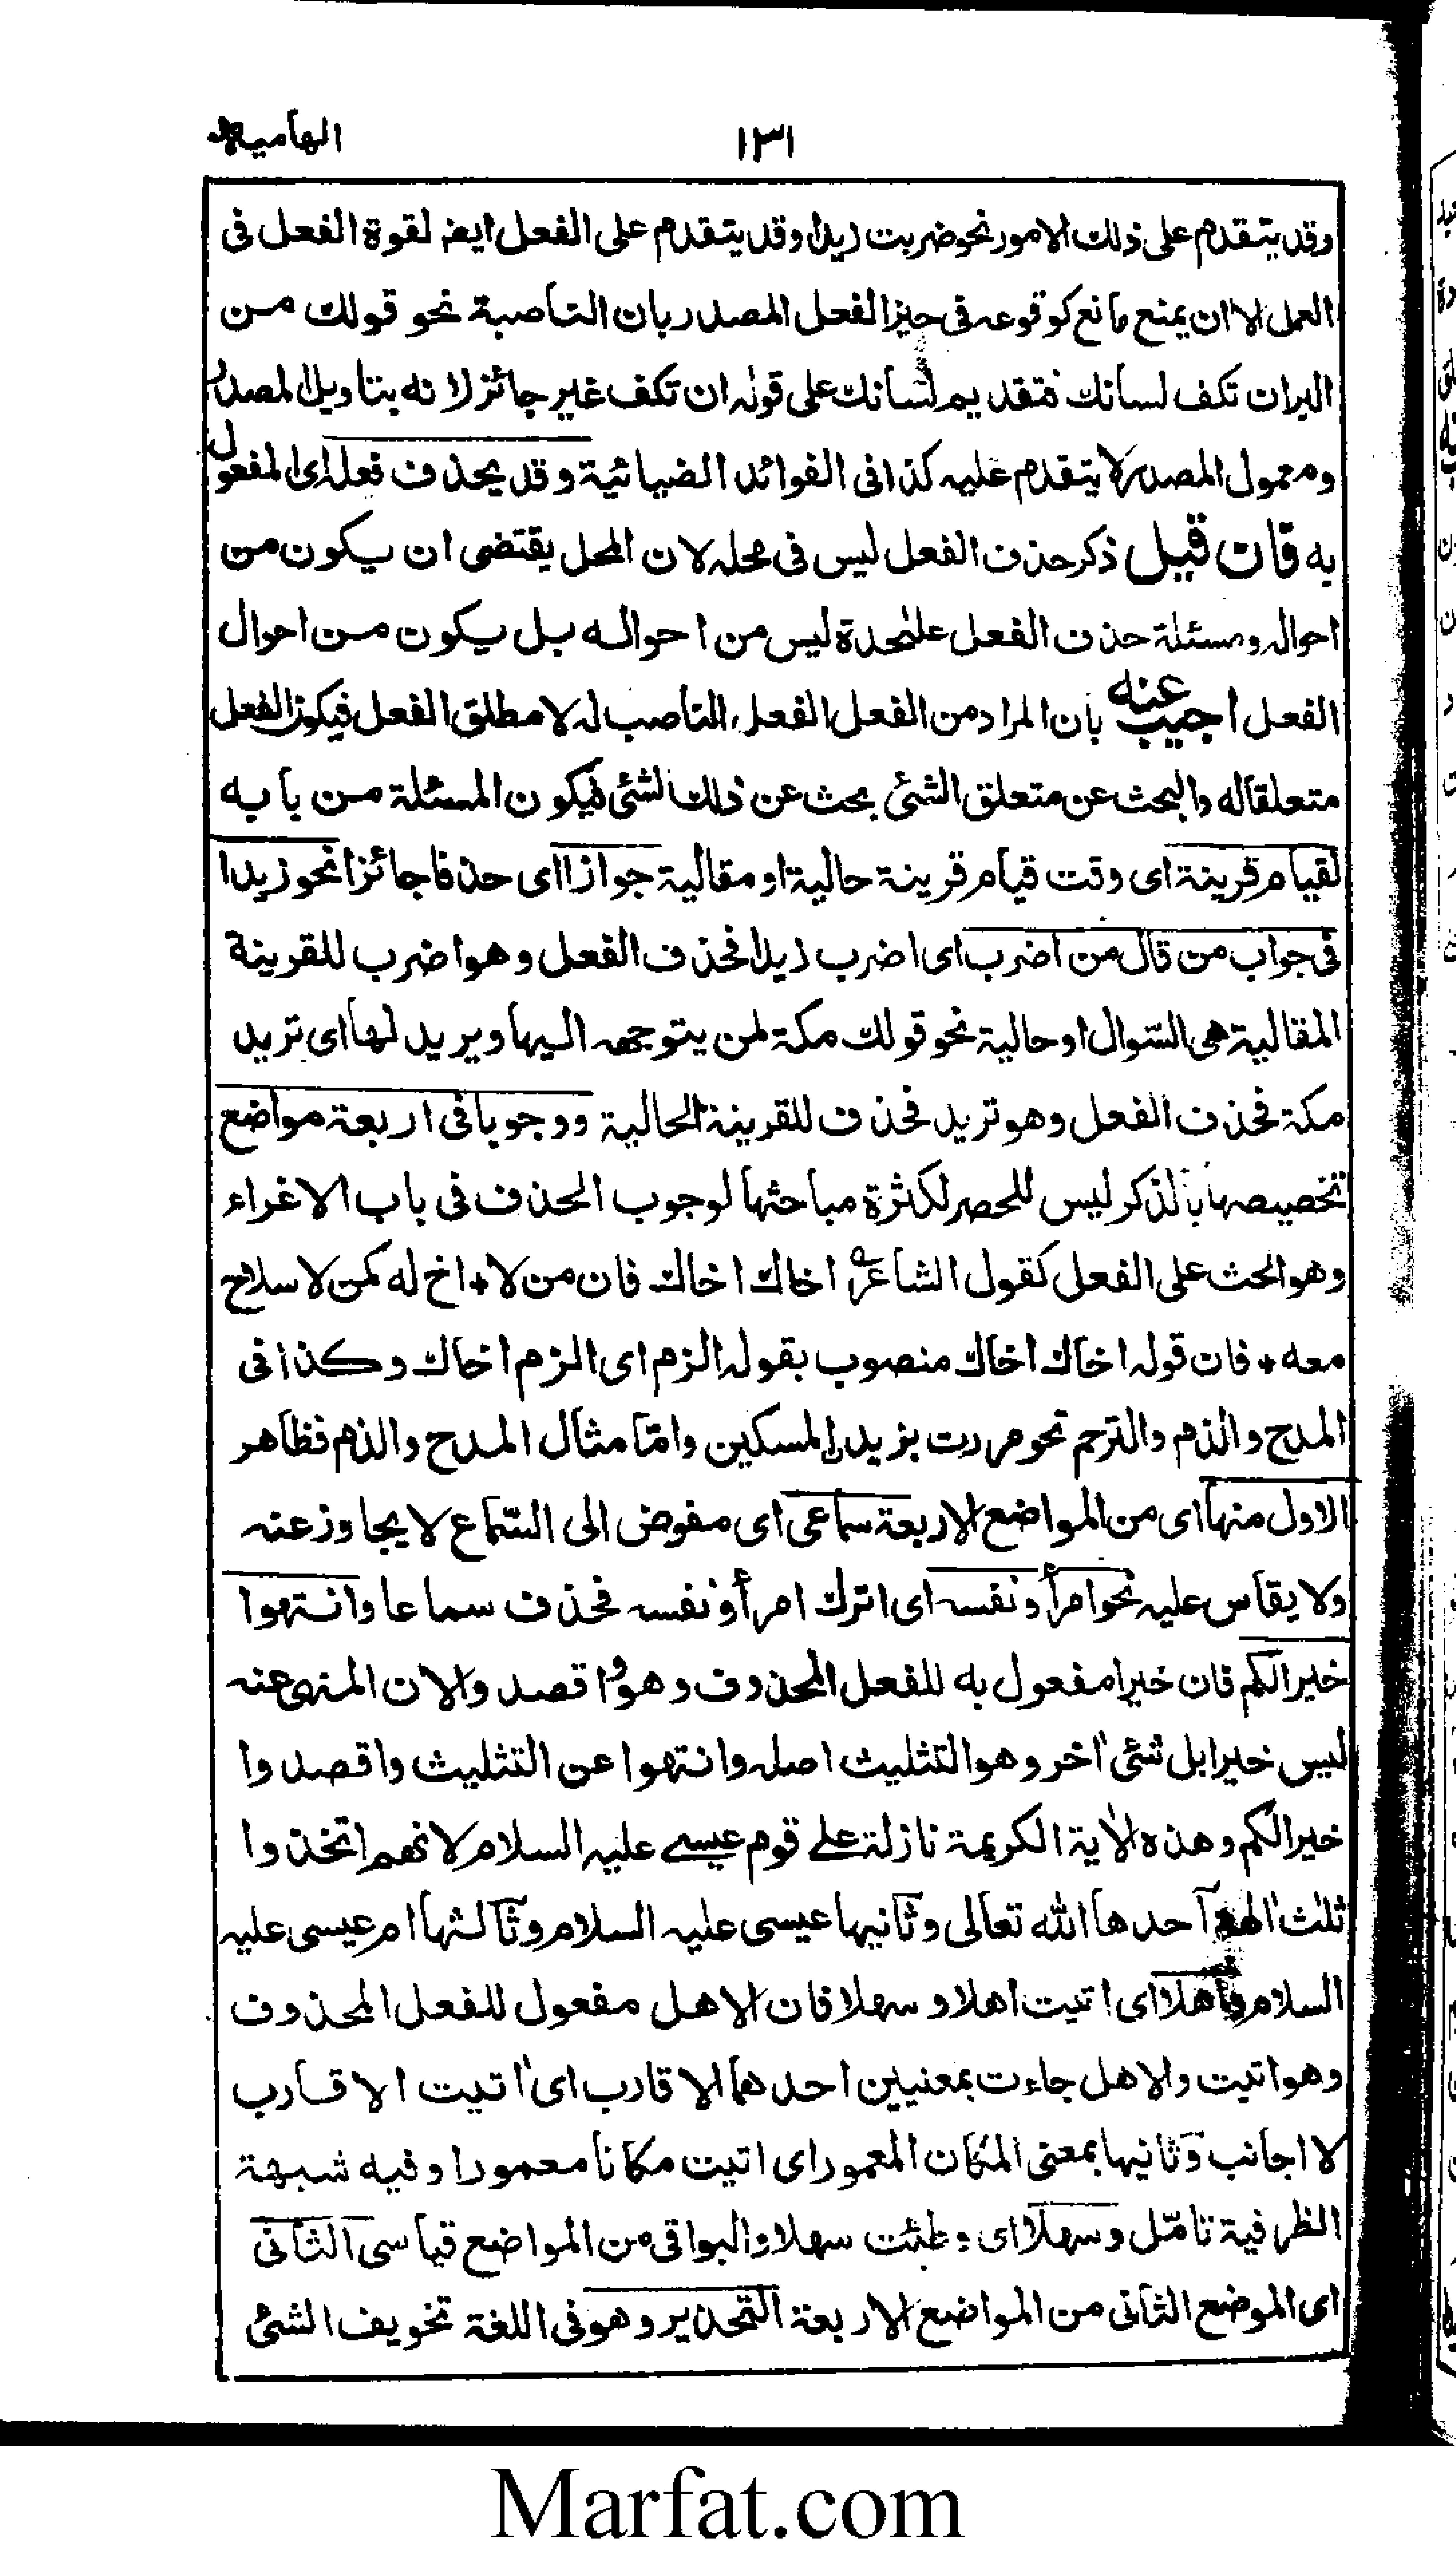 ١٣١ الهامية
وقد يتقدم على ذلك الامور نحو ضربت زيدا وقد يتقدم على الفعل ايضه لقوة الفعل فى
العمل الا ان يمنع مانع كوقوعه فى حيز الفعل المصدر بان الناصبة نحو قولك من
البران تكف لسانك فتقديم لسانك على قوله ان تكف غير جائز لانه بتاويل المصدر
ومعمول المصدر لا يتقدم عليه كذا فى الفوائد الضيائية وقد يحذف فعله اى المفعول
به فان قيل ذكر حذف الفعل ليس فى محله لان المحل يقتضى ان يكون من
احواله ومسئلة حذف الفعل علٰحدة ليس من احواله بل يكون من احوال
الفعل اجيب عنه بان المراد من الفعل الفعل الناصب له لا مطلق الفعل فيكون الفعل
متعلقا له والبحث عن متعلق الشئ بحث عن ذلك الشئ فيكون المسئلة من بابه
لقيام قرينة اى وقت قيام قرينة حالية او مقالية جوازا اى حذفا جائزا نحو زيدا
فى جواب من قال من اضرب اى اضرب زيدا فحذف الفعل وهو اضرب للقرينة
المقالية هى السّوال او حالية نحو قولك مكة لمن يتوجهه اليها ويريد لها اى تريد
مكة فحذف الفعل وهو تريد فحذف للقرينة الحالية ووجوبا فى اربعة مواضع
تخصيصها بالذكر ليس للحصر لكثرة مباحثها لوجوب الحذف فى باب الاغراء
وهو الحث على الفعل كقول الشاعر ؎ اخاك اخاك فان من لا + اخ له كمن لا سلاح
معه + فان قوله اخاك اخاك منصوب بقوله الزم اى الزم اخاك وكذا فى
المدح والذم والترحم نحو مررت بزيد المسكين وامّا مثال المدح والذم فظاهر
الاول منها اى من المواضع الاربعة سماعى اى مفوض الى السّماع لا يجاوز عنه
ولا يقاس عليه نحو امرأ ونفسه اى اترك امرأ ونفسه فحذف سماعا وانتهوا
خيرا لكم فان خيرا مفعول به للفعل المحذوف وهو واقصدوا لان المنهى عنه
ليس خيرا بل شئ اٰخر وهو التثليث اصله وانتهوا عن التثليث واقصدوا
خيرا لكم وهذه الاٰية الكريمة نازلة على قوم عيسى عليه السلام لانهم اتخذوا
ثلٰث اٰلهة احدها الله تعالى وثانيها عيسى عليه السلام وثالثها ام عيسى عليه
السلام واهلا اى اتيت اهلا وسهلا فان الاهل مفعول للفعل المحذوف
وهو اتيت والاهل جاءت بمعنيين احدهما الاقارب اى اتيت الاقارب
لا اجانب وثانيها بمعنى المكان المعمور اى اتيت مكانا معمورا وفيه شبهة
الظرفية تامّل وسهلا اى وطئت سهلا والبواقى من المواضع قياسى الثانى
اى الموضع الثانى من المواضع الاربعة التّحذير وهو فى اللغة تخويف الشئ
Marfat.com